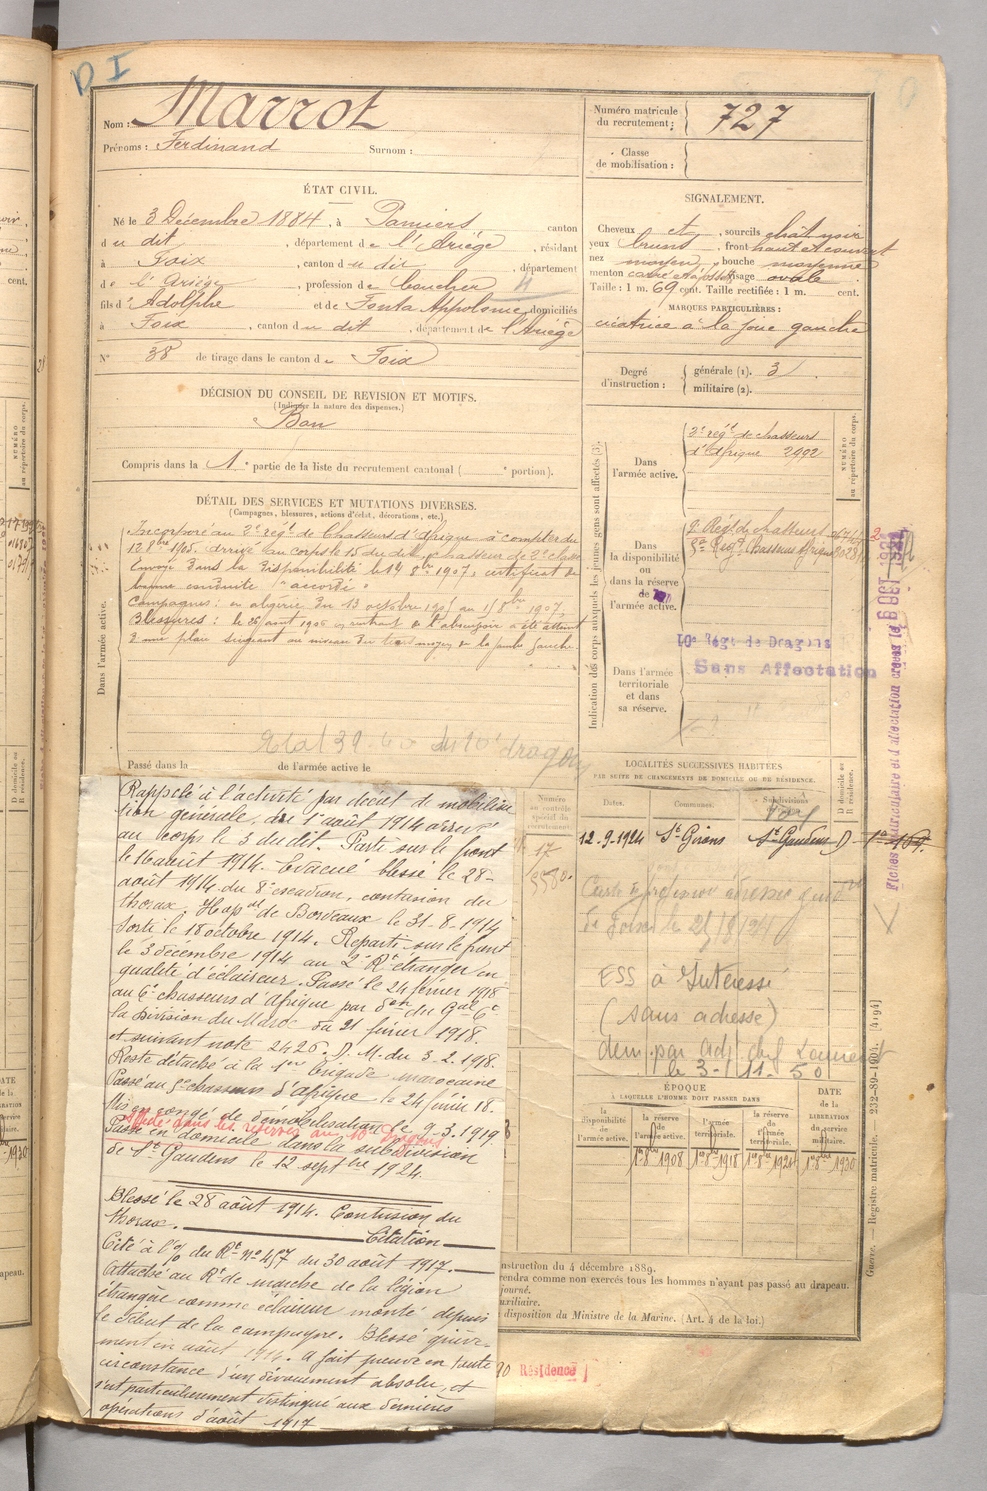 D I
Nom : Marrot
Prénoms : Ferdinand Surnom :
Numéro matricule
du recrutement : 727
Classe
de mobilisation :
ÉTAT CIVIL.
Né le 3 Décembre 1884, à Pamiers canton
du dit, département de l'Ariège, résidant
à Foix, canton du dit, département
de l'Ariège, profession de boucher
fils d'Adolphe et de Fonta Appolonie, domiciliés
à Foix, canton du dit, département de l'Ariège
N° 38 de tirage dans le canton de Foix
SIGNALEMENT.
Cheveux et, sourcils chât noir
yeux bruns, front haut et couvert
nez moyen, bouche moyenne
menton carré visage ovale
Taille : 1 m. 69 cent. Taille rectifiée : 1 m. cent.
MARQUES PARTICULIÈRES :
cicatrice à la joue gauche
Degré
d'instruction :
générale (1). 3
militaire (2).
DÉCISION DU CONSEIL DE REVISION ET MOTIFS.
(Indiquer la nature des dispenses.)
Bon
Compris dans la 1e partie de la liste du recrutement cantonal ( portion).
DÉTAIL DES SERVICES ET MUTATIONS DIVERSES.
(Campagnes, blessures, actions d'éclat, décorations, etc.)
Dans l'armée active.
Incorporé au 2e régt de Chasseurs d'Afrique à compter du
12 8bre 1905. arrivé au corps le 15 du dit, chasseur de 2e classe
Envoyé dans la disponibilité le 14 8bre 1907, certificat de
bonne conduite "accordé"
Campagnes : en algérie du 13 octobre 1905 au 8bre 1907
Blessures : le 26 août 1906 en rentrant de l'abreuvoir a été atteint
d'une plaie au niveau du tiers moyen de la jambe gauche.
du 10e dragons
Passé dans la de l'armée active le
Indication des corps auxquels les jeunes gens sont affectés (3).
Dans
l'armée active.
2e régt de chasseurs
d'Afrique 2992
NUMÉRO
au répertoire du corps.
Dans
la disponibilité
ou
dans la réserve
de
l'armée active.
2e Régt de chasseurs
5e Régt Chasseurs Afrique
10e Régt de Dragons
Sans Affectation
Dans l'armée
territoriale
et dans
sa réserve.
LOCALITÉS SUCCESSIVES HABITÉES
PAR SUITE DE CHANGEMENTS DE DOMICILE OU DE RÉSIDENCE.
Numéro
au contrôle
spécial du
recrutement.
Dates. Communes. Subdivisions
D domicile ou
R résidence.
17
12-9-1924 St Girons St Gaudens D
ESS à Intéressé
(sans adresse)
dem par adj chef Laurent
le 3-11-50
Rappelé à l'activité par décret de mobilisa-
tion générale, du 1er août 1914 arrivé
au corps le 3 du dit. Parti sur le front
le 16 août 1914. Evacué blessé le 28-
août 1914 du 8e escadron, contusion du
thorax. Hopal de Bordeaux le 31-8-1914
Sorti le 18 octobre 1914. Reparti sur le front
le 3 décembre 1914 au 2e Rt étranger en
qualité d'éclaireur. Passé le 24 février 1918
au 6e chasseurs d'afrique par don du Gal Ct
la Division du Maroc du 21 février 1918.
et suivant note 2426. D. M. du 3.2.1918.
Reste détaché à la 1ere brigade marocaine
Passé au 5e chasseurs d'afrique le 24 février 18.
Mis en congé de démobilisation le 9.3.1919
Affecté dans les réserves au 10e Dragons
Passé en domicile dans la subdivision
de St Gaudens le 12 septbre 1924.
Blessé le 28 août 1914. Contusion du
thorax.
Citation
Cité à l'O/ du Rt n° 457 du 30 août 1917.
Attaché au Rt de marche de la légion
étrangère comme éclaireur monté depuis
le début de la campagne. Blessé griève-
ment en août 1914. a fait preuve en toute
circonstance d'un dévouement absolu, et
s'est particulièrement distingué aux dernières
opérations d'août 1917
ÉPOQUE
À LAQUELLE L'HOMME DOIT PASSER DANS
DATE
de la
LIBÉRATION
du service
militaire.
la
disponibilité
de
l'armée active.
la réserve
de
l'armée active.
l'armée
territoriale.
la réserve
de
l'armée
territoriale.
1er 8bre 1908 1er 8bre 1918 1er 8bre 1924 1er 8bre 1930
nstruction du 4 décembre 1889.
endra comme non exercés tous les hommes n'ayant pas passé au drapeau.
journé.
uxiliaire.
disposition du Ministre de la Marine. (Art. 4 de la loi.)
Résidence
Guerre. — Registre matricule. — 232-89-1904. [4194]